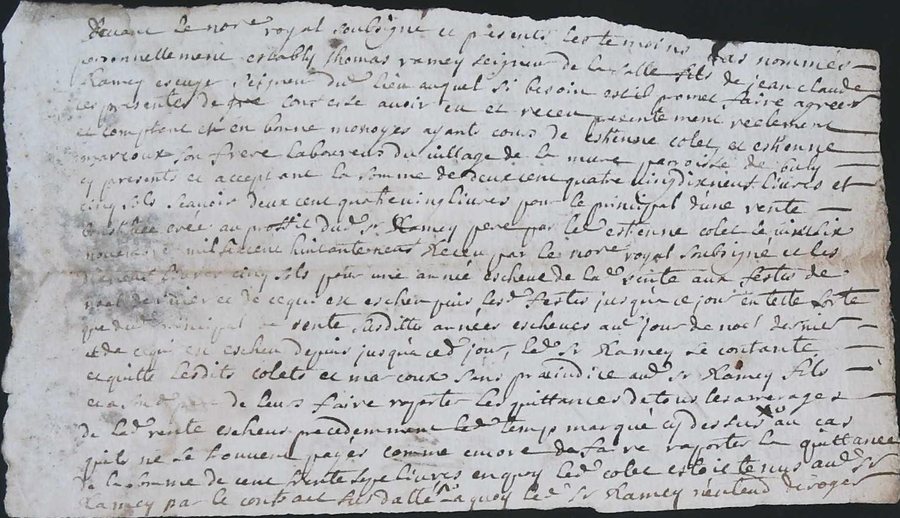 devant le nore royal soubsigné et presents les temoins bas nommés
personnellement estably thomas ramey seigneur de la salle fils de jean claude
Ramey escuyer seigneur dud lieu auquel si besoin est il promet faire agreer
ces presentes de gre confesse avoir eu et receu presentement reelement
et comptent et en bonne monoyes ayants cours de estienne colet et estienne
marcoux son frere laboureurs du village de la mure parroisse de
cy presents et acceptant la somme de deux cent quatre vingt dix neuf livres et
cinq sols scavoir deux cent quatre vingt livres pour le principal dune vente
créé au proffit dud Sr Ramey pere par led estienne colet le
mil six cent huictante receu par le nore royal soubsigné et les
dix neuf livres cinq sols pour une année escheue de lad rente aux festes de
noel dernier et de ce qui est escheu puis lesd festes jusqua ce jour en telle sorte
que dud principal de rente susdittes années escheues aud jour de noel dernier
et de ce qui est escheu depuis jusqua ced jour, led Sr Ramey se contante
et quitte lesdits colets et marcoux sans prejudice aud Sr Ramey fils
de leurs faire raporter les quittances de tous les arrerages
de lad rente escheus precedemment led temps marqué cy dessus au cas
quils ne se trouvent payés comme encore de faire raporter la quittance
de la somme de cent trente livres en quoy led colet estoit tenus aud Sr
Ramey par le contract susdatté a quoy led Sr Ramey n'entend deroger